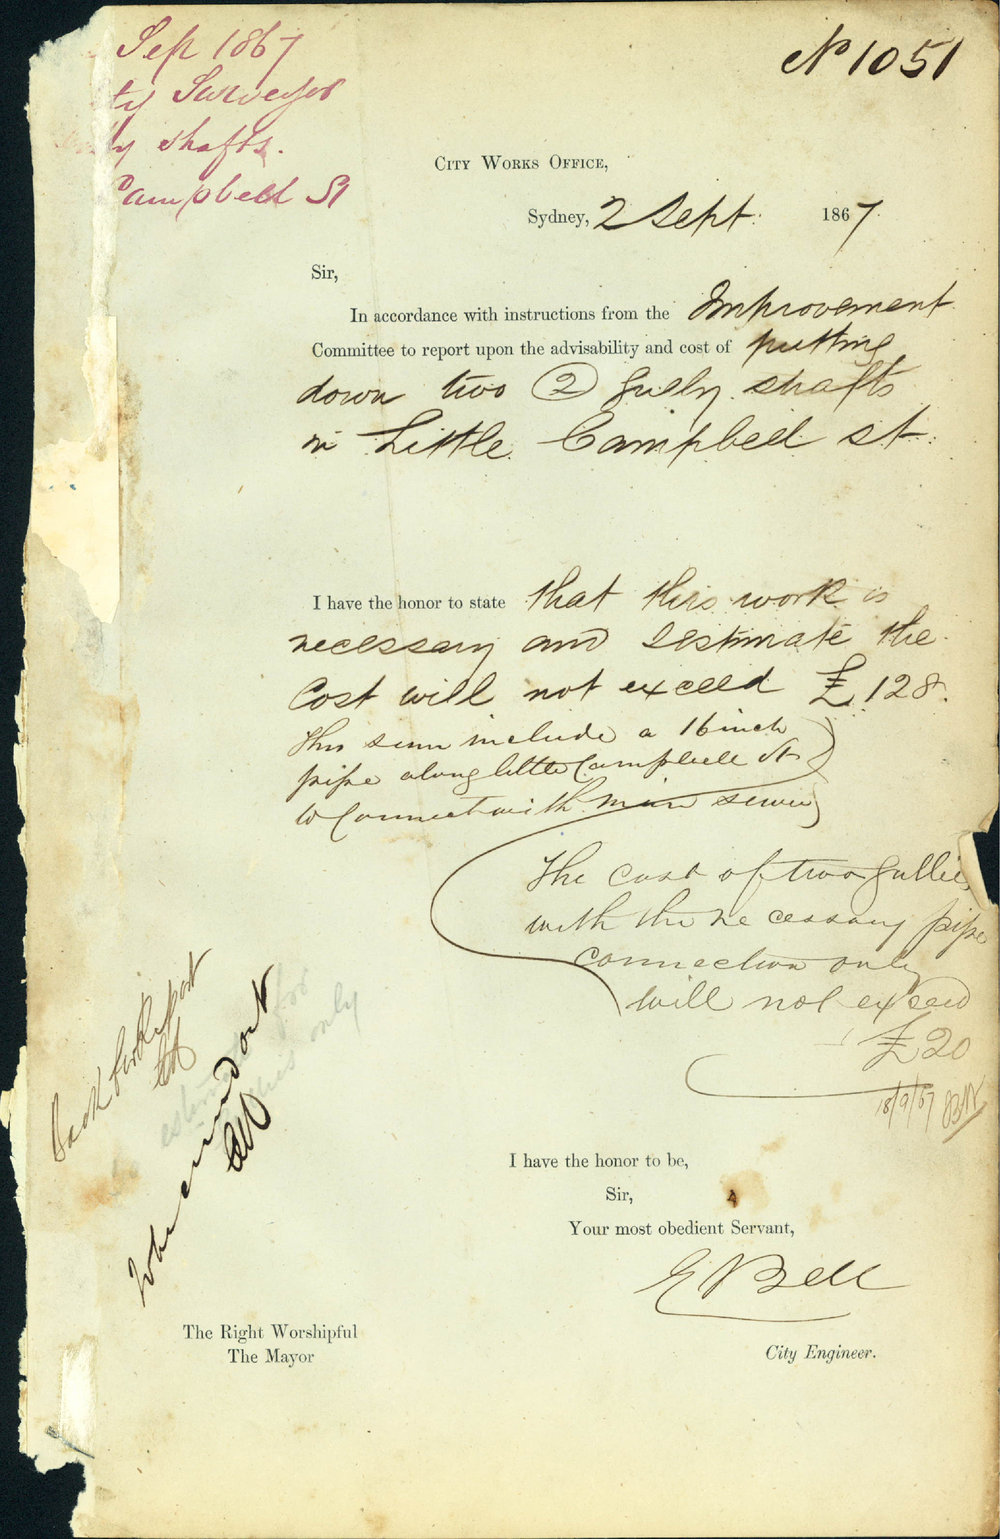 Sep 1867
ty Surveyor
ly shafts.
Campbell St
No 1051
City Works Office,
Sydney, 2 Sept. 1867.
Sir,
In accordance with instructions from the Improvement
Committee to report upon the advisability and cost of putting
down two (2) gully shafts
in Little Campbell st.
I have the honor to state that this work is
necessary and I estimate the
Cost will not exceed £128.
This sum include a 16 inch
pipe along little Campbell St
to Connect with main sewer
The cost of two gullies
with the necessary pipe
connection only
will not exceed
£20
18/9/67
Back for Report
estimate for
only
I have the honor to be,
Sir,
Your most obedient Servant,
E Bell
City Engineer.
The Right Worshipful
The Mayor